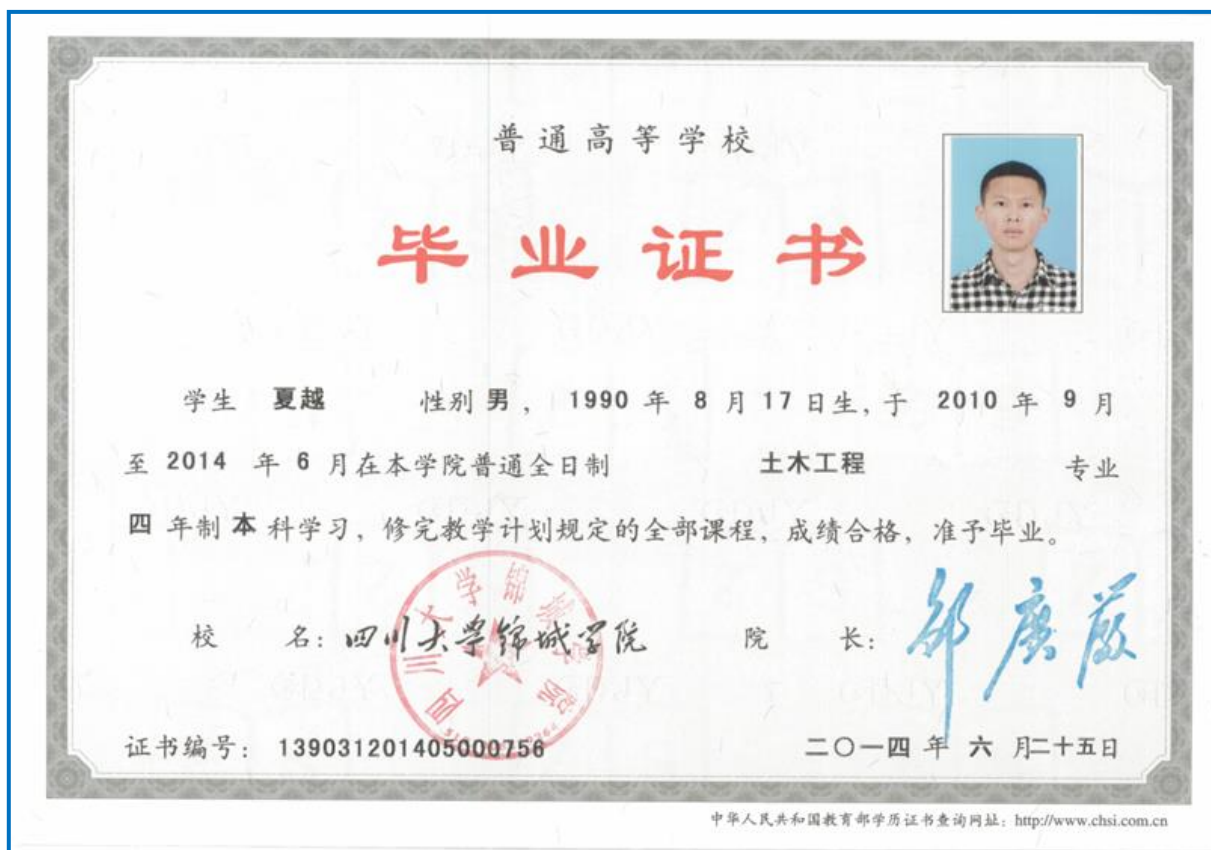 普通高等学校
毕业证书
学生 夏越 性别 男, 1990 年 8 月 17 日生, 于 2010 年 9 月
至 2014 年 6 月在本学院普通全日制 土木工程 专业
四 年制 本 科学习, 修完教学计划规定的全部课程, 成绩合格, 准予毕业。
校 名: 四川大学锦城学院 院 长: 邹广严
四川大学锦城学院
证书编号: 139031201405000756 二〇一四 年 六 月二十五日
中华人民共和国教育部学历证书查询网址: http://www.chsi.com.cn